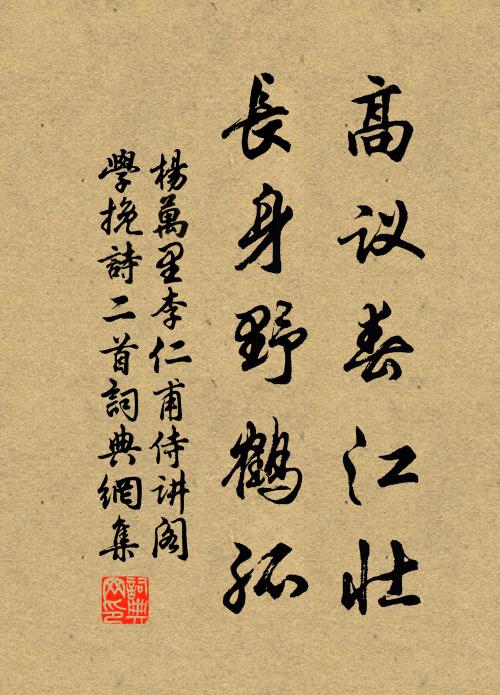 高议春江壮
長身野鶴孤
楊萬里李仁甫侍讲阁
學挽詩二首詞典網集
詞典网印